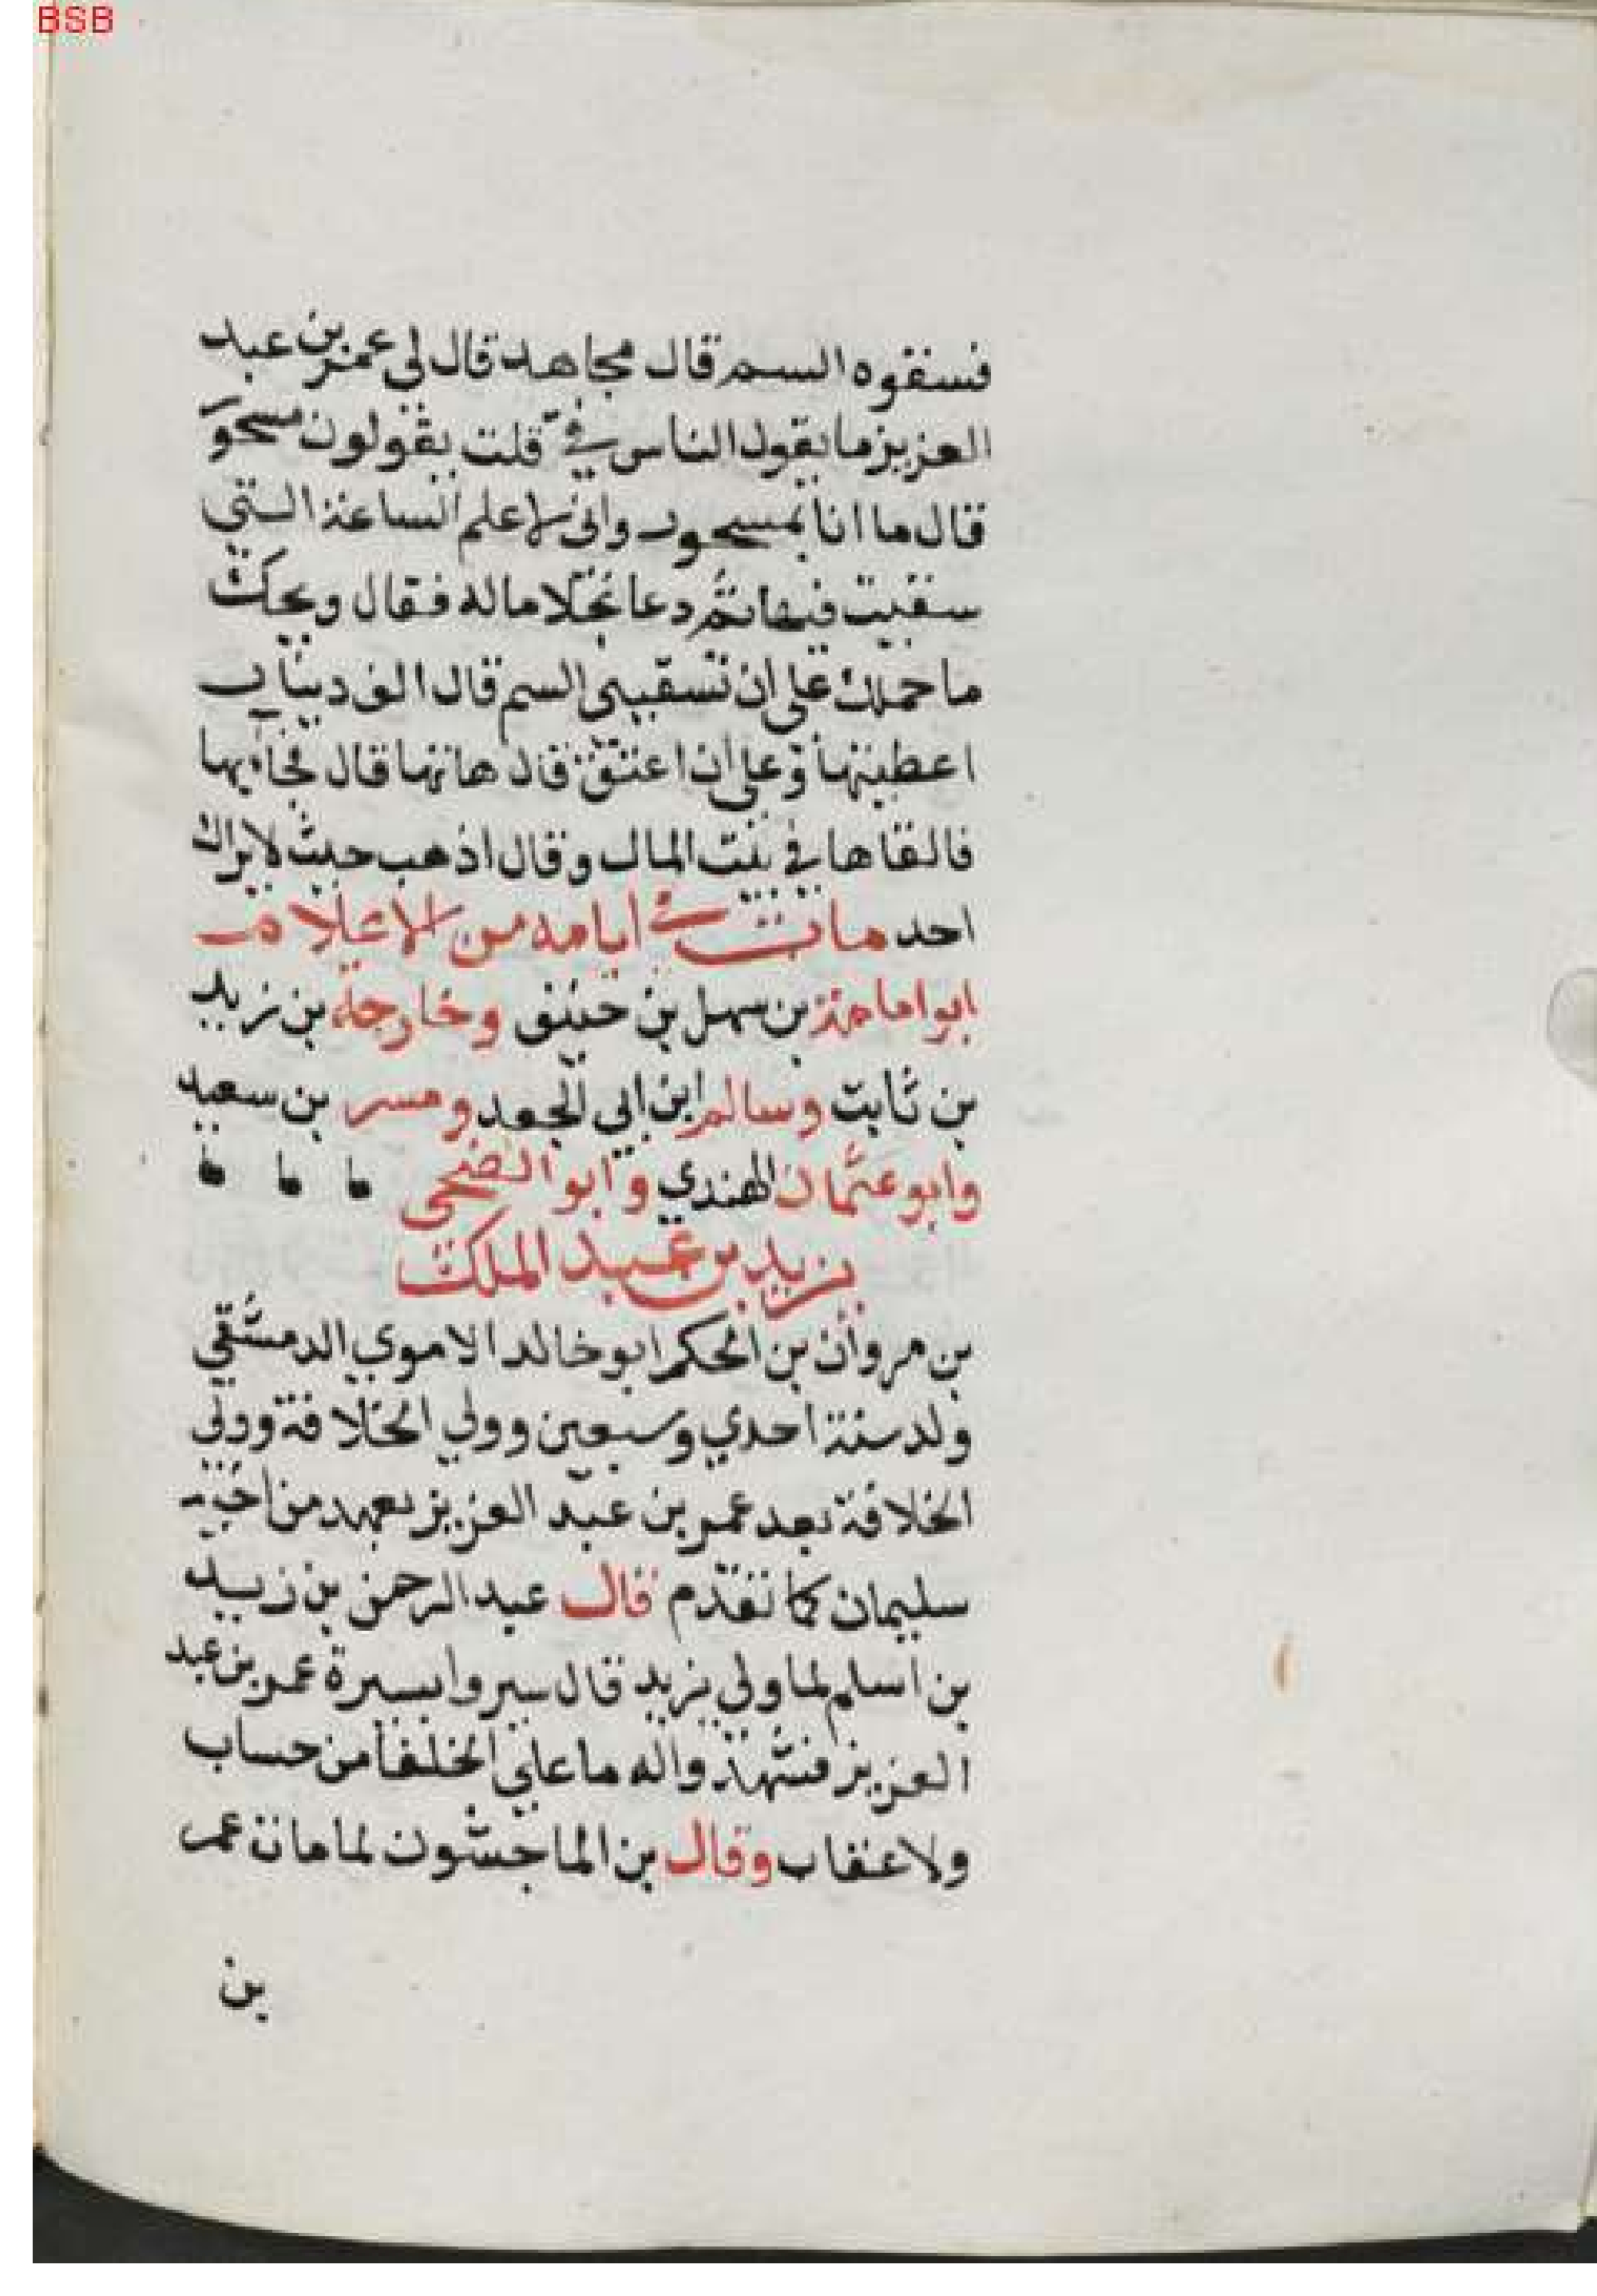 BSB
فسقوه السم قال مجاهد قال لي عمر بن عبد
العزيز ما يقول الناس في قلت يقولون مسحور
قال ما انا بمسحور واني لاعلم الساعة التي
سقيت فيها ثم دعا غلاما له فقال ويحك
ما حملك على ان تسقيني السم قال الف دينار
اعطيتها وعلى ان اعتق قال هاتها قال فجا بها
فالقاها في بيت المال وقال اذهب حيث لا يراك
احد مات في ايامه من الاعلام
ابو امامة بن سهل بن حنيف وخارجة بن زيد
بن ثابت وسالم ابن ابي الجعد وبسر بن سعيد
وابو عثمان الهندي وابو الضحى
يزيد بن عبد الملك
بن مروان بن الحكم ابو خالد الاموي الدمشقي
ولد سنة احدي وسبعين وولي الخلافة وولي
الخلافة بعد عمر بن عبد العزيز بعهد من اخيه
سليمان كما تقدم قال عبد الرحمن بن زيد
بن اسلم لما ولي يزيد قال سيروا بسيرة عمر بن عبد
العزيز فشهد واله ما على الخلفا من حساب
ولا عقاب وقال بن الماجشون لما مات عمر
بن